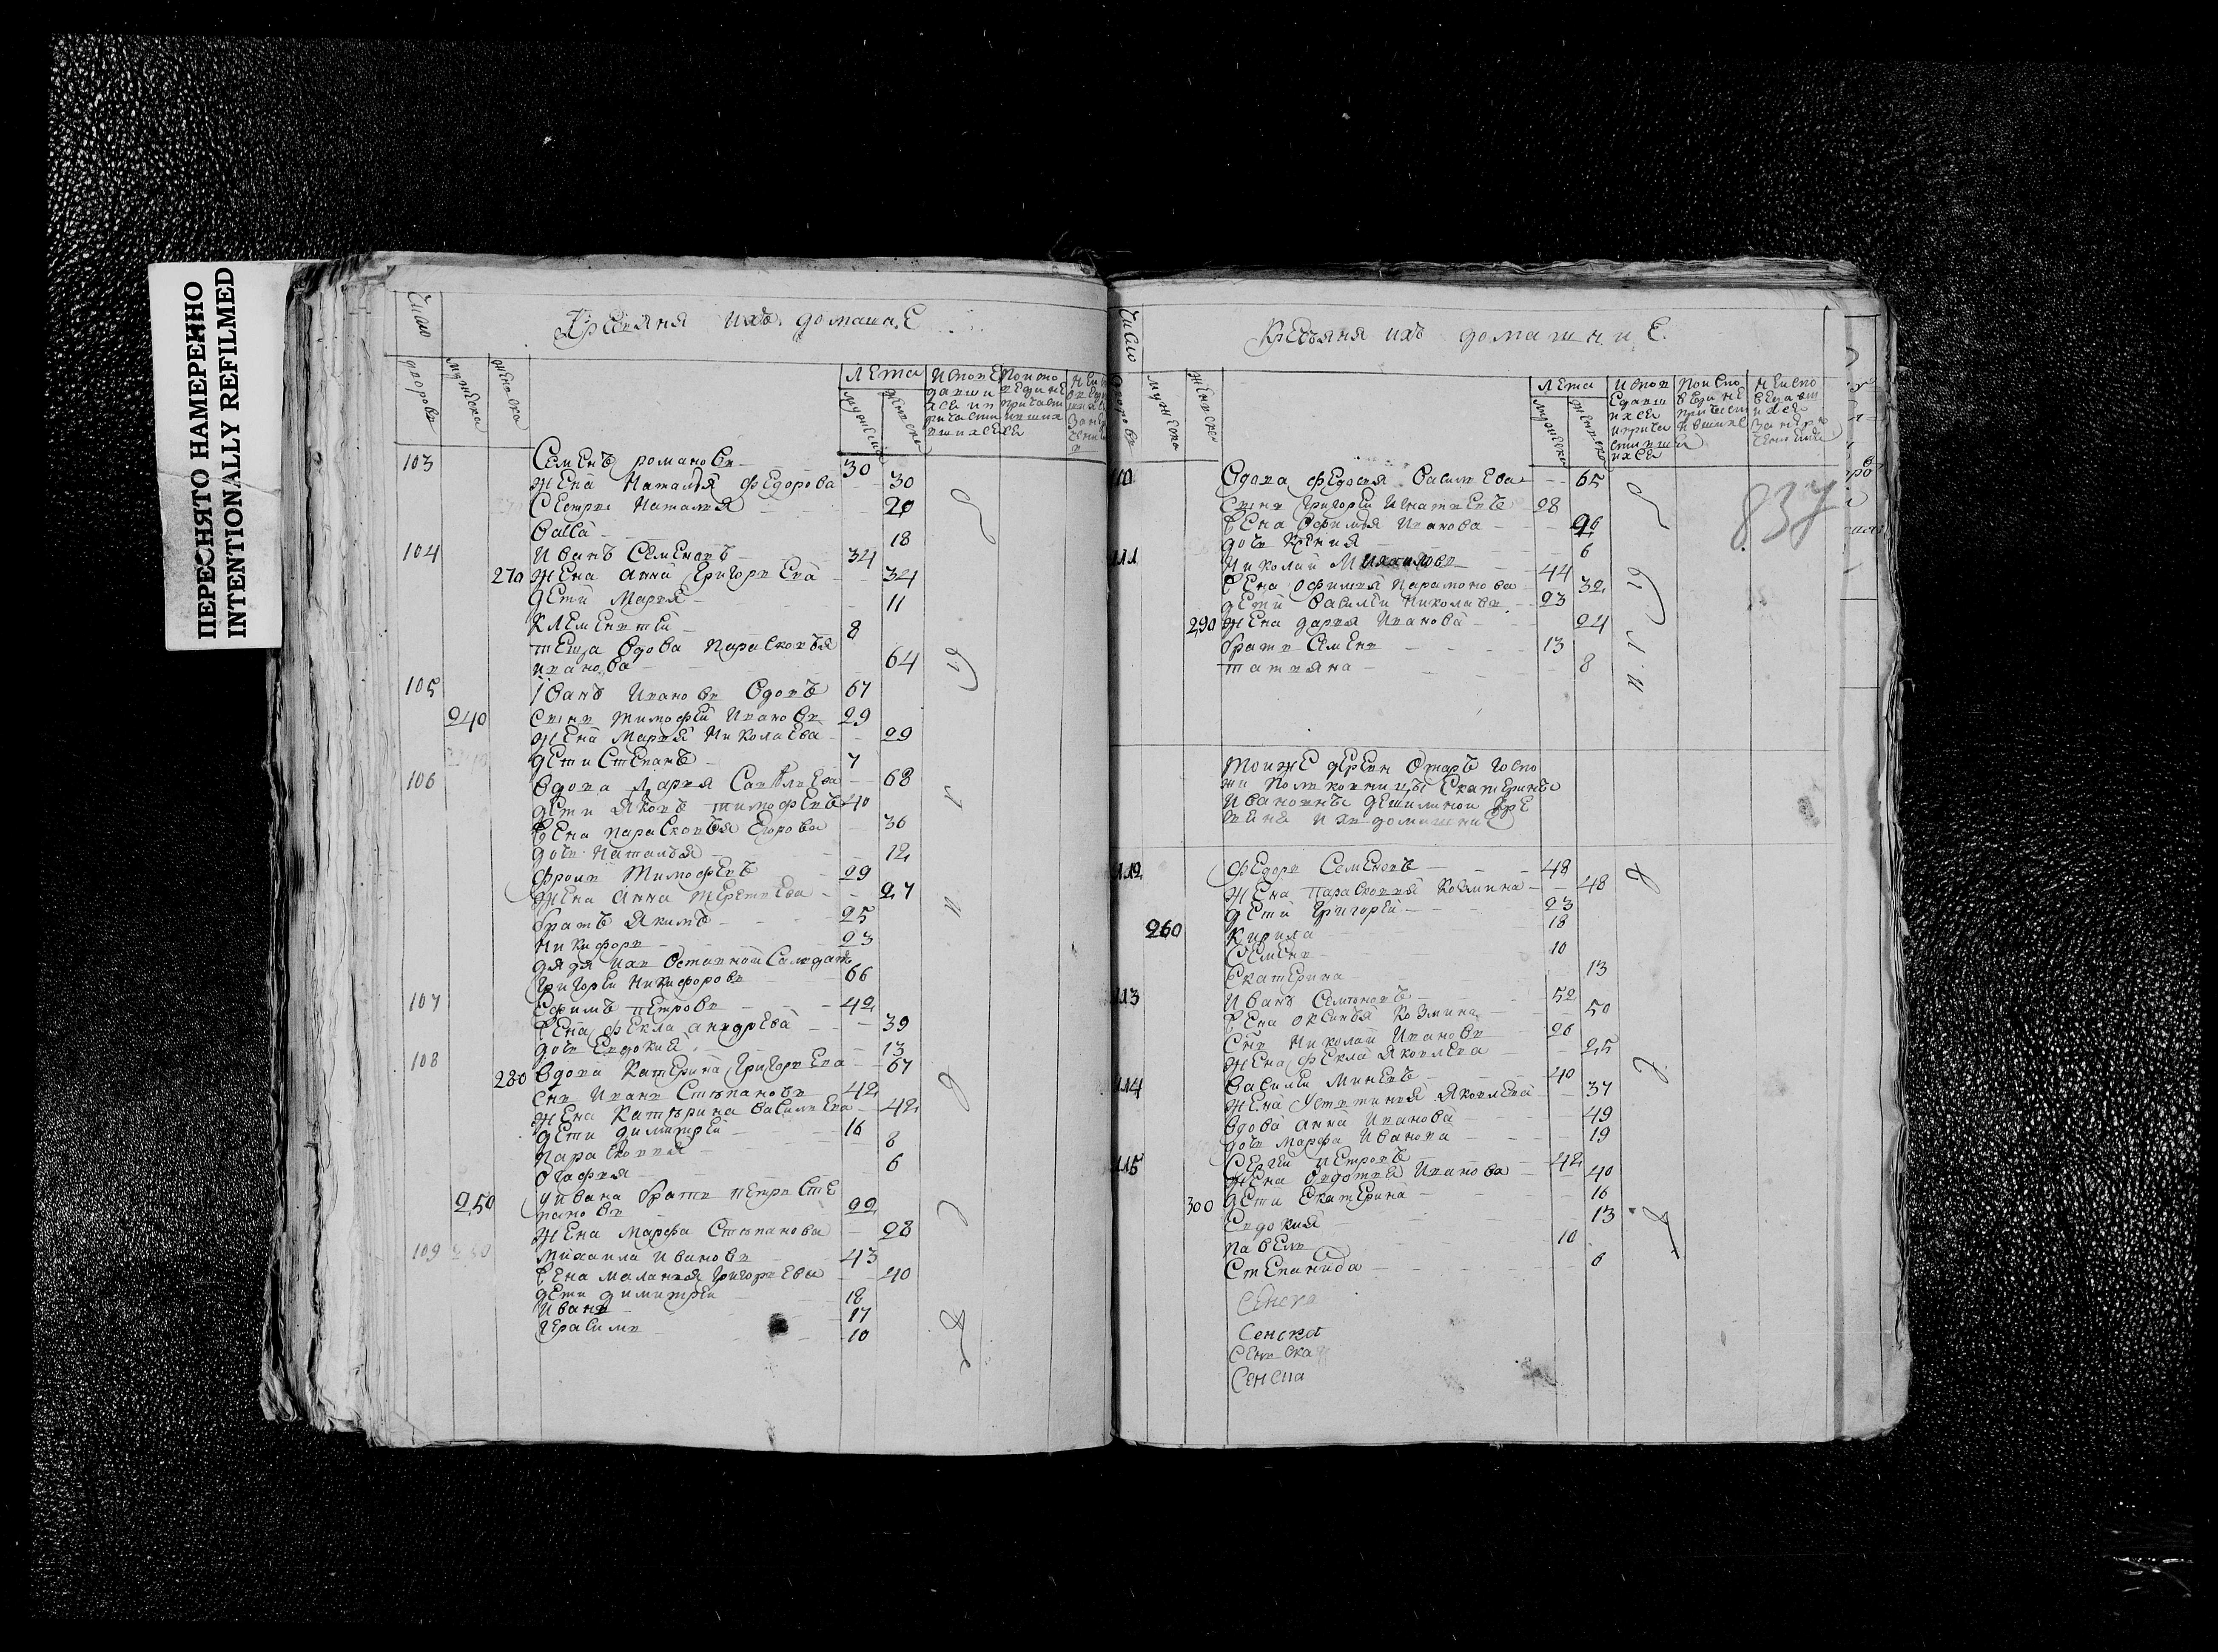 ПЕРЕСНЯТО НАМЕРЕННО
INTENTIONALLY REFILMED
Число
дворовъ
мужеска
женска
Крестьяня ихъ домашние
Лета
мужеска
женска
103 Семенъ романовъ 30
жена Наталья федорова 30
Сестры Наталья 20
Васса 18
104 Иванъ Семеновъ 34
270 жена анна Григорьева 34
дети Марья 11
Климентей 8
теща вдова Парасковья
иванова 64
105 Иванъ Ивановъ вдовъ 67
240 сынъ тимофей Ивановъ 29
жена Марья Николаева 29
дети Степанъ 7
106 вдова дарья Савельева 68
дети Яковъ тимофеевъ 40
жена парасковья Егорова 36
дочь Наталья 12
фролъ Тимофеевъ 29
жена Анна терентьева 27
братъ Якимъ 25
Никифоръ 23
дядя ихъ отставной Салдатъ
Григорей Никифоровъ 66
107 Ефимъ петровъ 42
жена фекла андреева 39
дочь Евдокия 13
108 280 вдова Катерина Григорьева 67
снъ Иванъ Степановъ 42
жена Катерина васильева 42
дети димитрей 16
парасковья 8
Огафья 6
250 у ивана братъ петръ Сте
пановъ 22
жена Марфа Степанова 28
109 Михаила ивановъ 43
жена маланья Григорьева 40
дети димитрей 18
Иванъ 17
герасимъ 10
Число
дворовъ
мужеска
женска
Крестьяня ихъ домашние
Лета
мужеска
женска
837
110 Вдова федосья васильева 65
сынъ Григорей Игнатьевъ 28
жена офимья Иванова 26
дочь Ксения 6
111 Николай Михаиловъ 44
жена офимья Парамонова 32
дети василей Николаевъ 23
290 жена дарья Иванова 24
братъ Семенъ 13
татьяна 8
Тоиже дрени Отаръ госпо
жи Полковницы Екатерины
Ивановны кре
стьяня ихъ домашния
112 федоръ Семеновъ 48
жена парасковья Козмина 48
дети Григорей 23
260 Кирила 18
Семенъ 10
Екатерина 13
113 Иванъ Семеновъ 52
жена оксинья козмина 50
снъ Николай Ивановъ 26
жена фекла Яковлева 25
114 Василей Минеевъ 40
жена Устинья Яковлева 37
вдова анна Иванова 49
дочь марфа Иванова 19
115 Сергей петровъ 42
жена овдотья Иванова 40
300 дети Екатерина 16
Евдокия 13
павелъ 10
Степанида 6
Сенска
Сенска
Сенска
Сенска